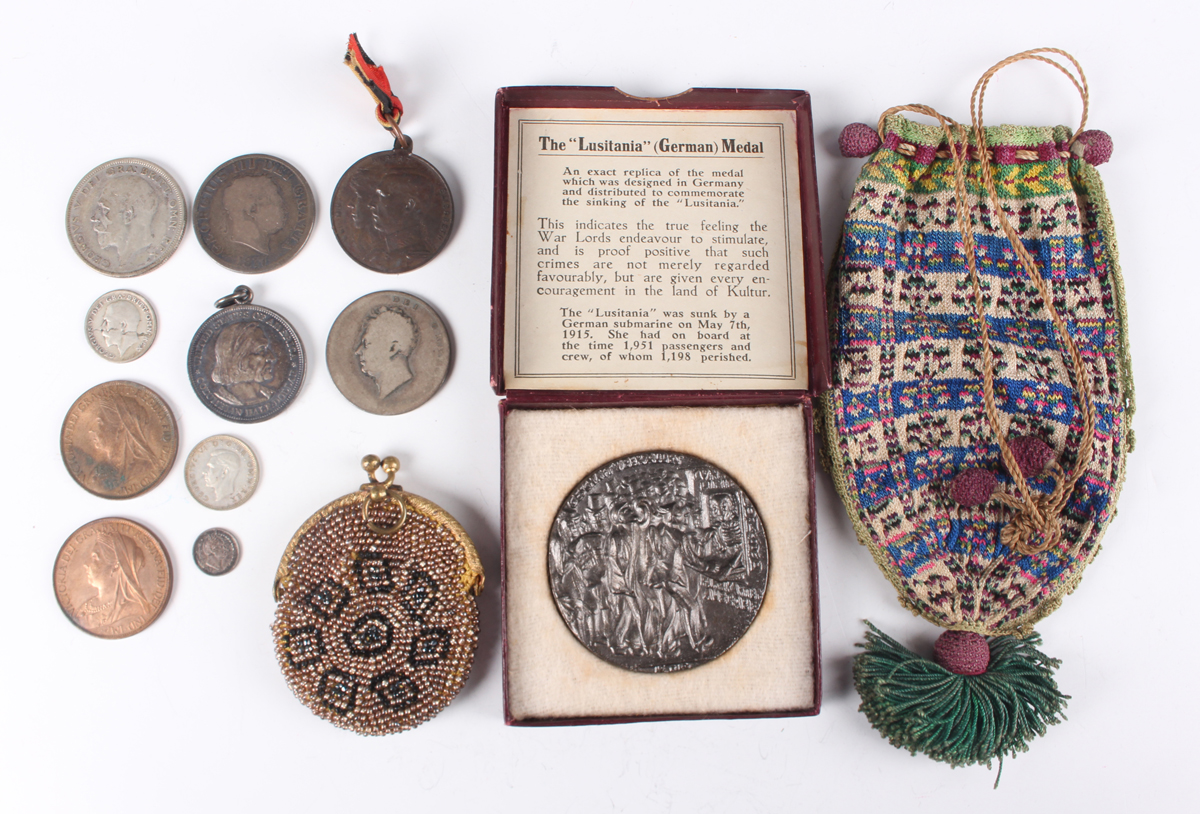 The "Lusitania" (German) Medal
An exact replica of the medal
which was designed in Germany
and distributed to commemorate
the sinking of the "Lusitania."
This indicates the true feeling the
War Lords endeavour to stimulate,
and is proof positive that such
crimes are not merely regarded
favourably, but are given every en-
couragement in the land of Kultur.
The "Lusitania" was sunk by a
German submarine on May 7th,
1915. She had on board at
the time 1,951 passengers and
crew, of whom 1,198 perished.